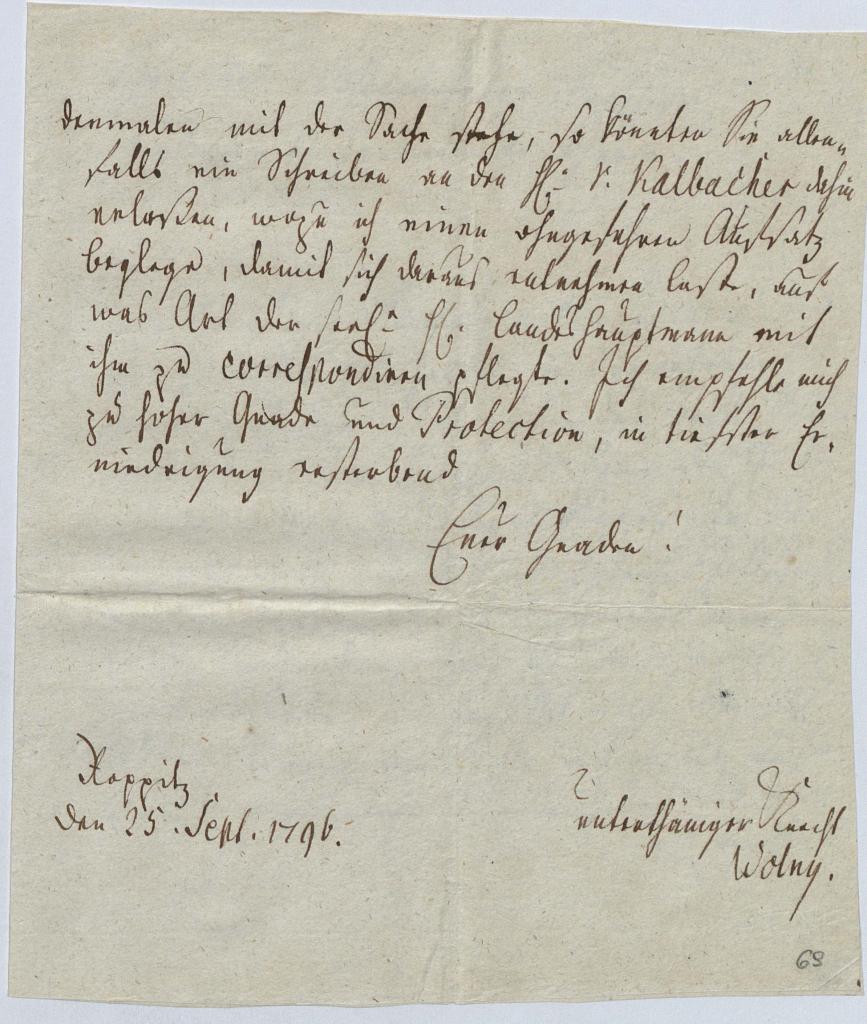 dermalen mit der Sache stehe, so könnten Sie allen-
falls ein Schreiben an den H. v. Kalbacher dahin
erlaßen, wozu ich einen ohngefehren Aufsatz
beylege, damit sich daraus entnehmen laße, auf
was Art der seel. H. Landeshauptmann mit
ihm zu correspondiren pflegte. Ich empfehle mich
zu hoher Gnade und Protection, in tiefster Er-
niedrigung ersterbend
Euer Gnaden!
Roppitz
den 25. Sept. 1796.
unterthäniger Knecht
Wolny.
69